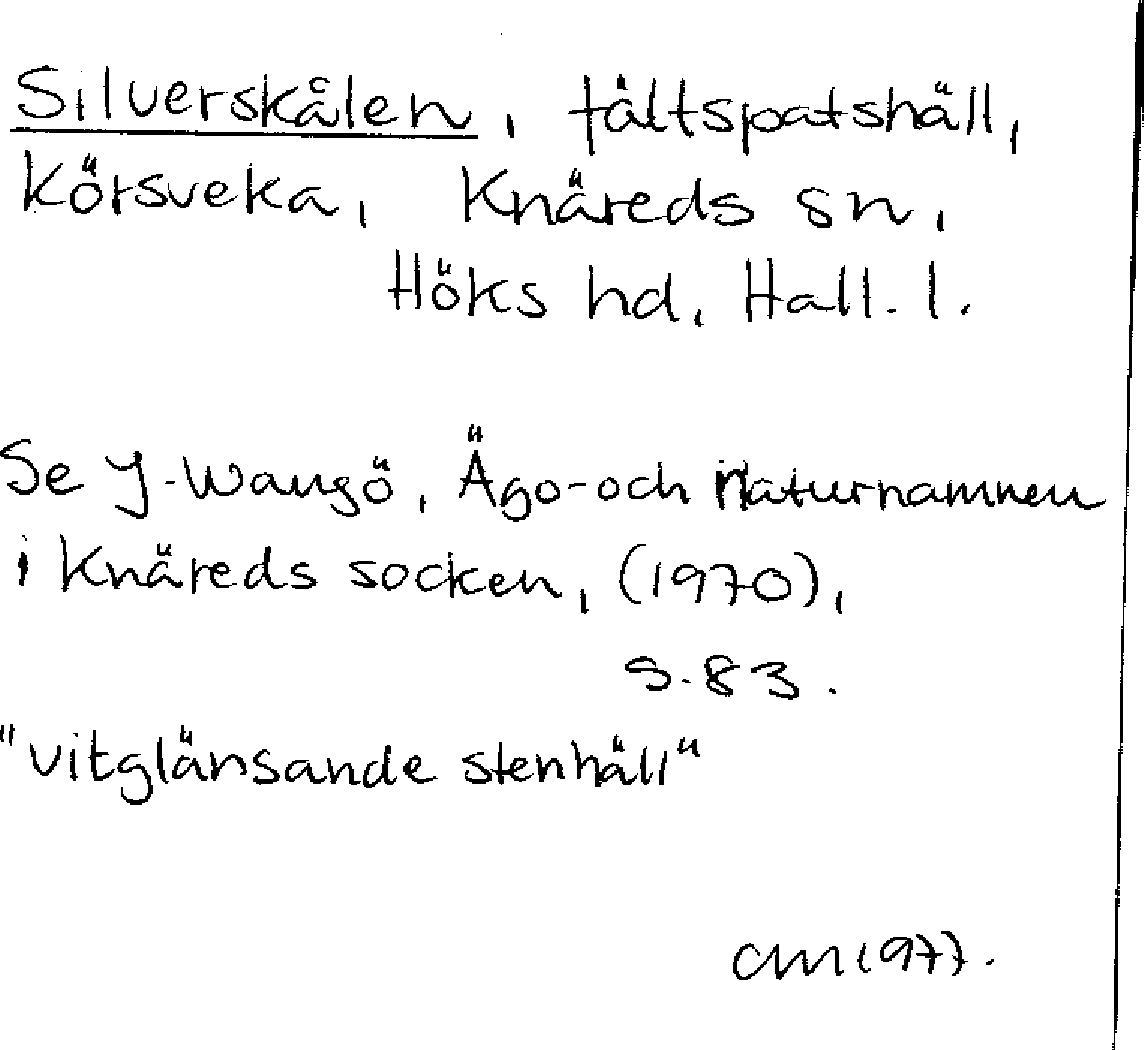 Silverskålen, fältspatshäll,
Körsveka, Knäreds sn,
Höks hd, Hall. l.
Se J. Wangö, Ägo- och Naturnamnen
i Knäreds socken, (1970),
s. 83.
"vitglänsande stenhäll"
CM 1977.